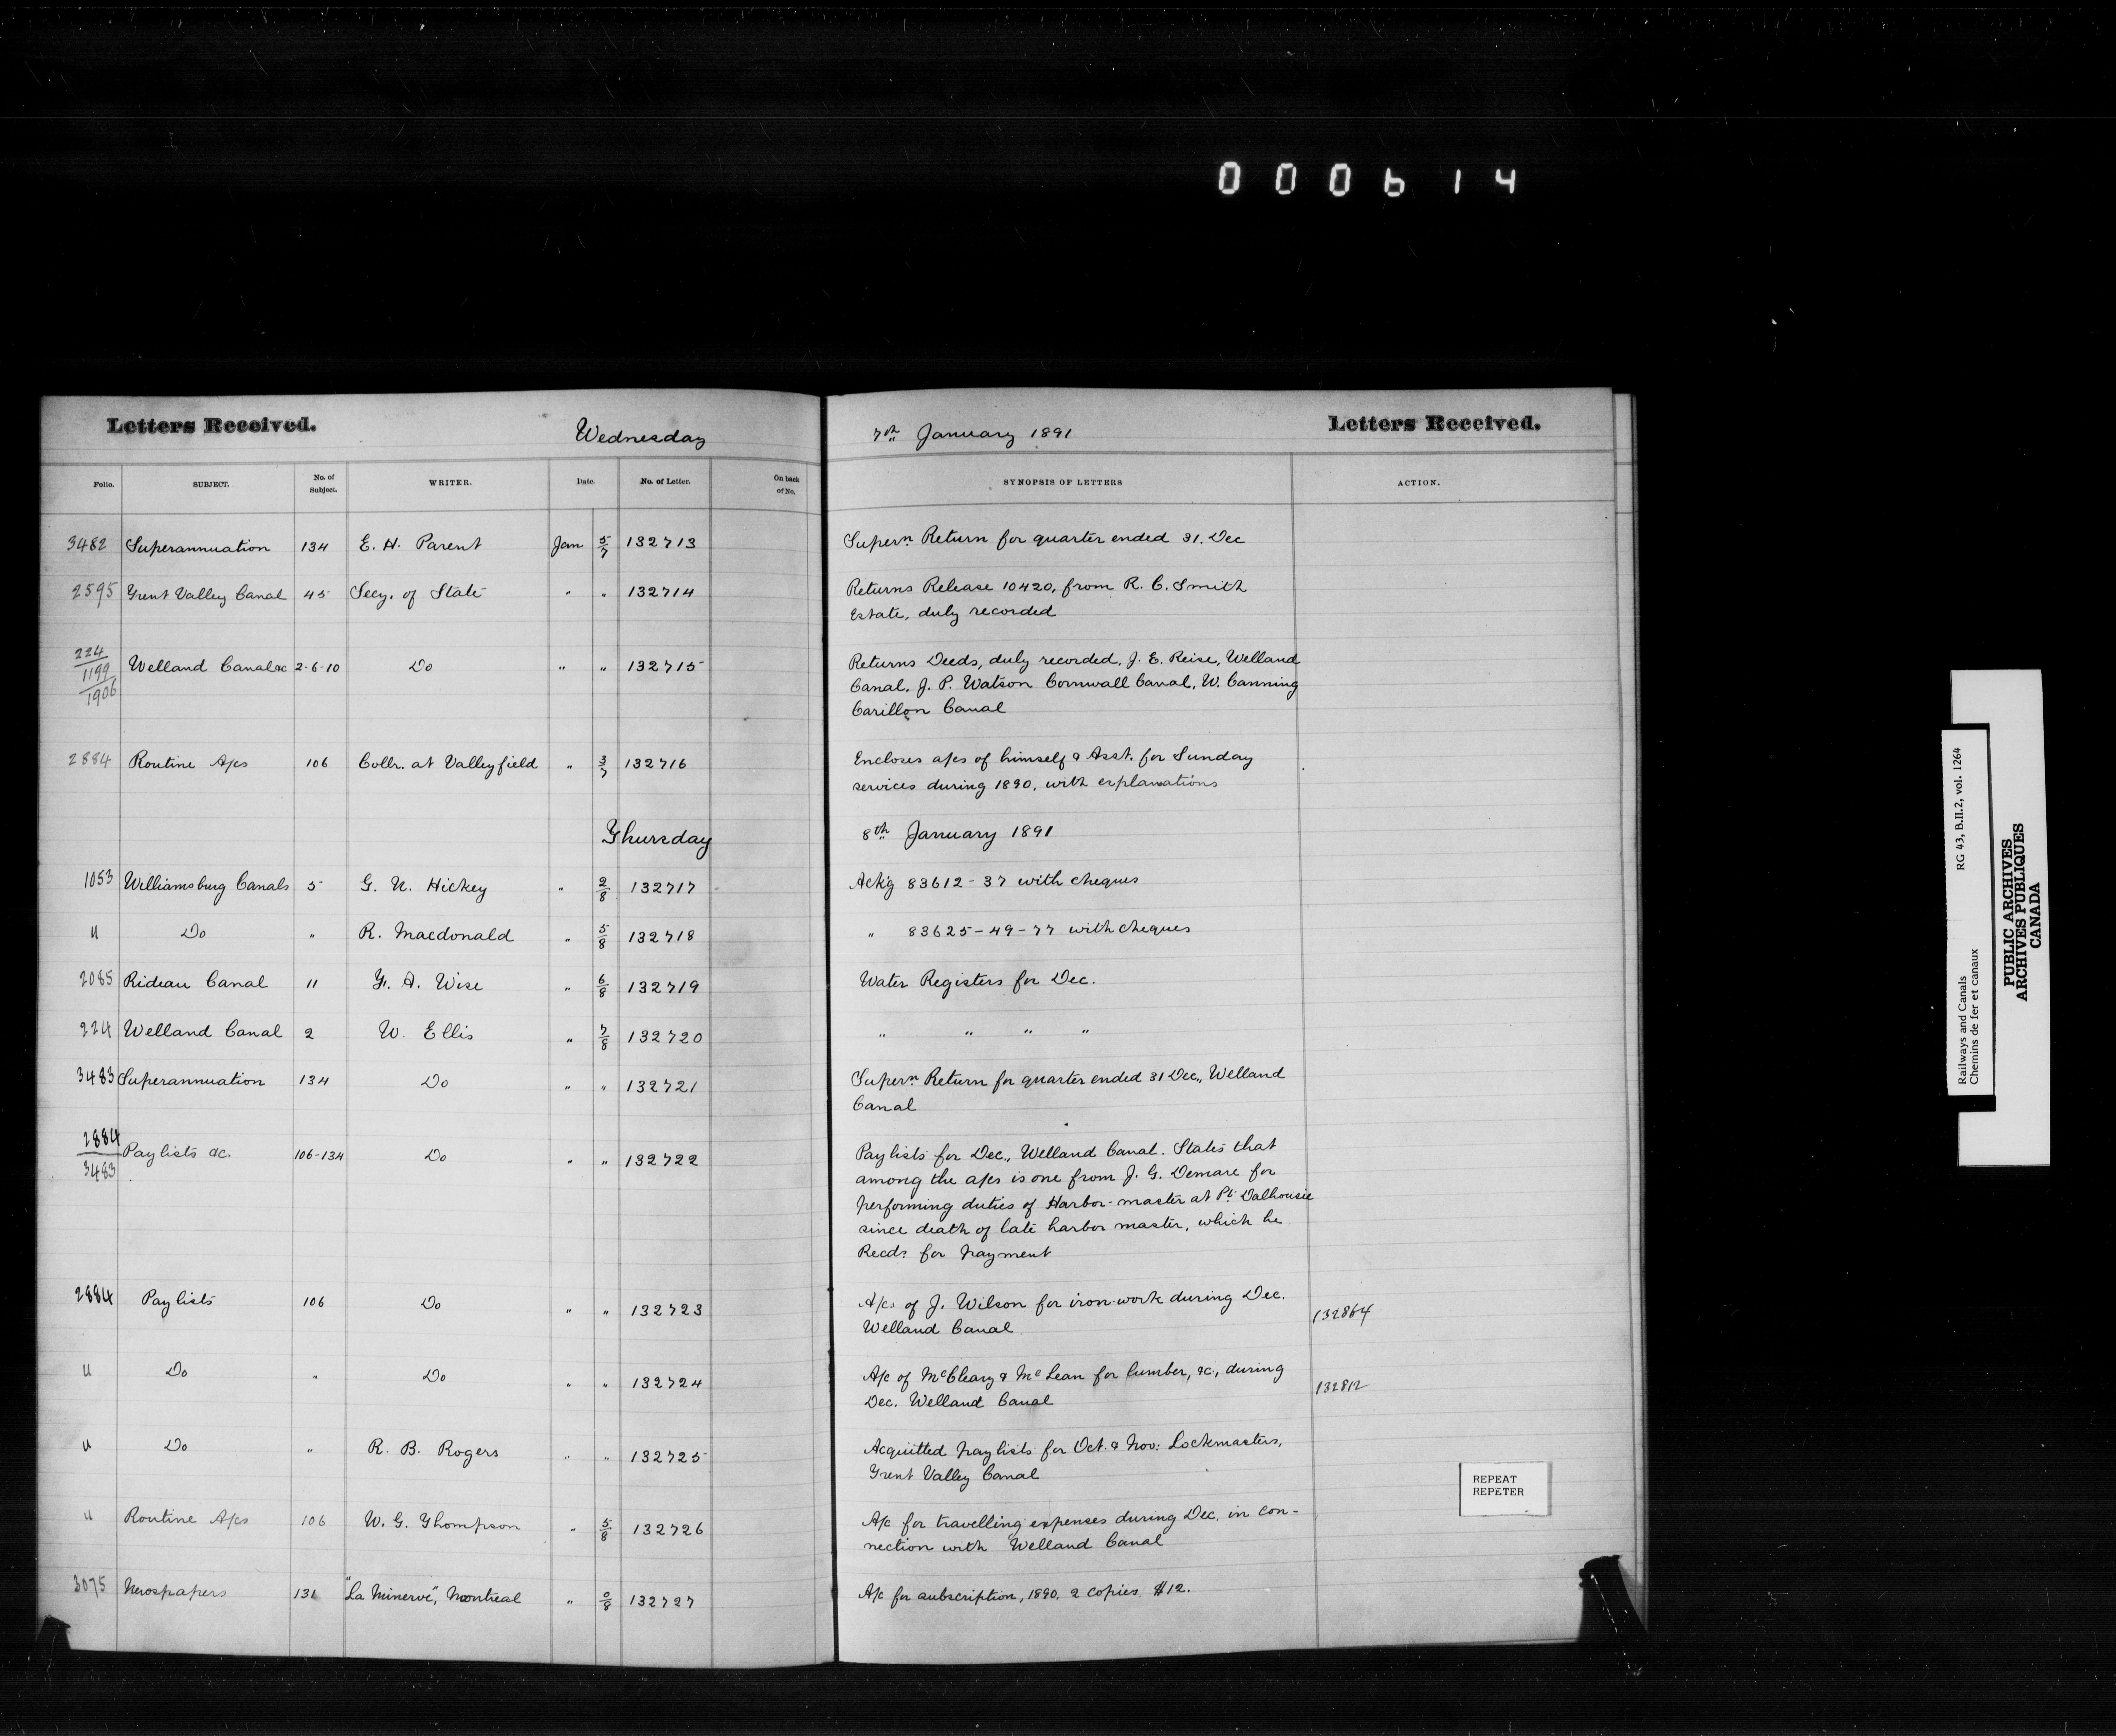 000614
Letters Received. Wednesday 7th January 1891 Letters Received.
Folio. SUBJECT. No. of Subject. WRITER. Date. No. of Letter. On back of No. SYNOPSIS OF LETTERS ACTION.
3482 Superannuation 134 E. H. Parent Jan 5/7 132713 Supern Return for quarter ended 31. Dec
2595 Trent Valley Canal 45 Secy. of State " " 132714 Returns Release 10420, from R. C. Smith
Estate, duly recorded
224/1199/1906 Welland Canal &c 2-6-10 Do " " 132715 Returns Deeds, duly recorded, J. E. Reise, Welland
Canal, J. P. Watson Cornwall Canal, W. Canning
Carillon Canal
2884 Routine A/cs 106 Collr. at Valleyfield " 3/7 132716 Encloses a/cs of himself & Asst. for Sunday
services during 1890, with explanations
Thursday 8th January 1891
1053 Williamsburg Canals 5 G. N. Hickey " 2/8 132717 Ackg 83612-37 with cheques
" Do " R. Macdonald " 5/8 132718 " 83625-49-77 with cheques
2085 Rideau Canal 11 F. A. Wise " 6/8 132719 Water Registers for Dec.
224 Welland Canal 2 W. Ellis " 7/8 132720 " " " "
3483 Superannuation 134 Do " " 132721 Supern Return for quarter ended 31 Dec., Welland
Canal
2884/3483 Pay lists &c. 106-134 Do " " 132722 Pay lists for Dec., Welland Canal. States that
among the a/cs is one from J. G. Demare for
performing duties of Harbor-master at Pt. Dalhousie
since death of late harbor master, which he
Recds. for payment
2884 Pay lists 106 Do " " 132723 A/cs of J. Wilson for iron-work during Dec.
Welland Canal 132864
" Do " Do " " 132724 A/c of McCleary & McLean for lumber, &c., during
Dec. Welland Canal 132812
" Do " R. B. Rogers " " 132725 Acquitted pay lists for Oct. & Nov: Lockmasters,
Trent Valley Canal
" Routine A/cs 106 W. G. Thompson " 5/8 132726 A/c for travelling expenses during Dec. in con-
nection with Welland Canal
3075 Newspapers 131 "La Minerve", Montreal " 0/8 132727 A/c for subscription, 1890, 2 copies. $12.
REPEAT
REPETER
Railways and Canals RG 43, B.II.2, vol. 1264
Chemins de fer et canaux
PUBLIC ARCHIVES
ARCHIVES PUBLIQUES
CANADA